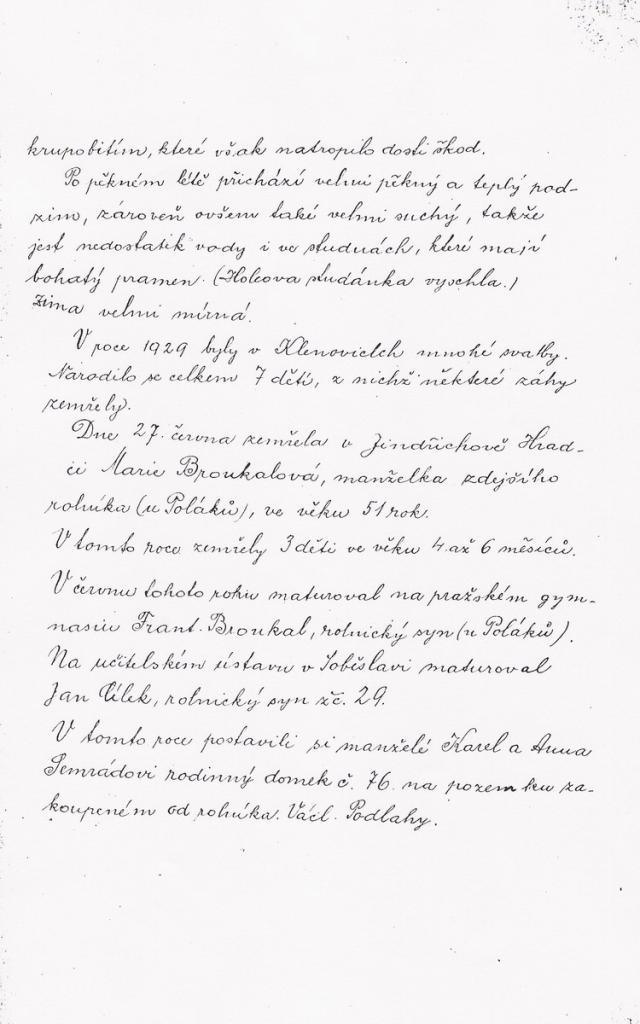 krupobitím, které však natropilo dosti škod.
Po pěkném létě přichází velmi pěkný a teplý pod-
zim, zároveň ovšem také velmi suchý, takže
jest nedostatek vody i ve studnách, které mají
bohatý pramen. (Holcova studánka vyschla.)
Zima velmi mírná.
V roce 1929 byly v Klenovicích mnohé svatby.
Narodilo se celkem 7 dětí, z nichž některé záhy
zemřely.
Dne 27. června zemřela v Jindřichově Hrad-
ci Marie Broukalová, manželka zdejšího
rolníka (u Poláků), ve věku 51 rok.
V tomto roce zemřely 3 děti ve věku 4 až 6 měsíců.
V červnu tohoto roku maturoval na pražském gym-
nasiu Frant. Broukal, rolnický syn (u Poláků).
Na učitelském ústavu v Soběslavi maturoval
Jan Cílek, rolnický syn z č. 29.
V tomto roce postavili si manželé Karel a Anna
Semrádovi rodinný domek č. 76. na pozemku za-
koupeném od rolníka Václ. Podlahy.